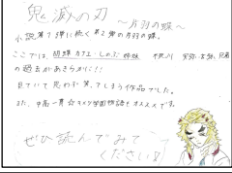 鬼滅の刃
～片羽の蝶～
小説第1弾に続く第2弾の片羽の蝶。
ここでは、胡蝶カナエ・しのぶ姉妹
の過去があきらかに!!
見ていて思わず笑ってしまう作品でした。
また、中高一貫☆キメツ学園物語もオススメです。
ぜひ読んでみて
ください!!